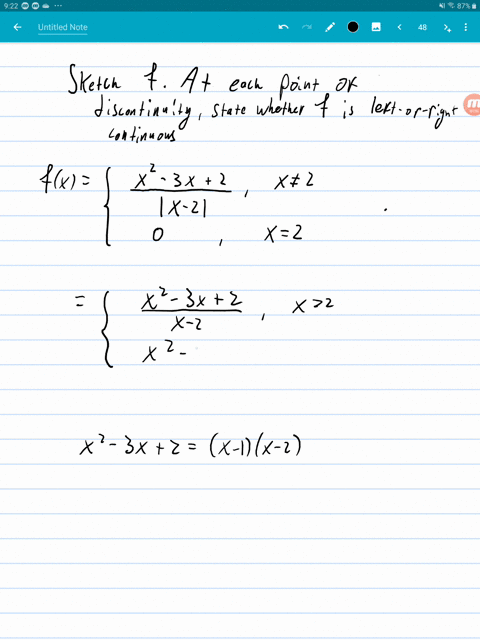 9:22
87%
Untitled Note
48
Sketch f. At each point of
discontinuity, state whether f is left-or-right
continuous
f(x) = { x² - 3x + 2 / |x-2| , x ≠ 2
0 , x = 2
= { x² - 3x + 2 / x-2 , x > 2
x² -
x² - 3x + 2 = (x-1)(x-2)